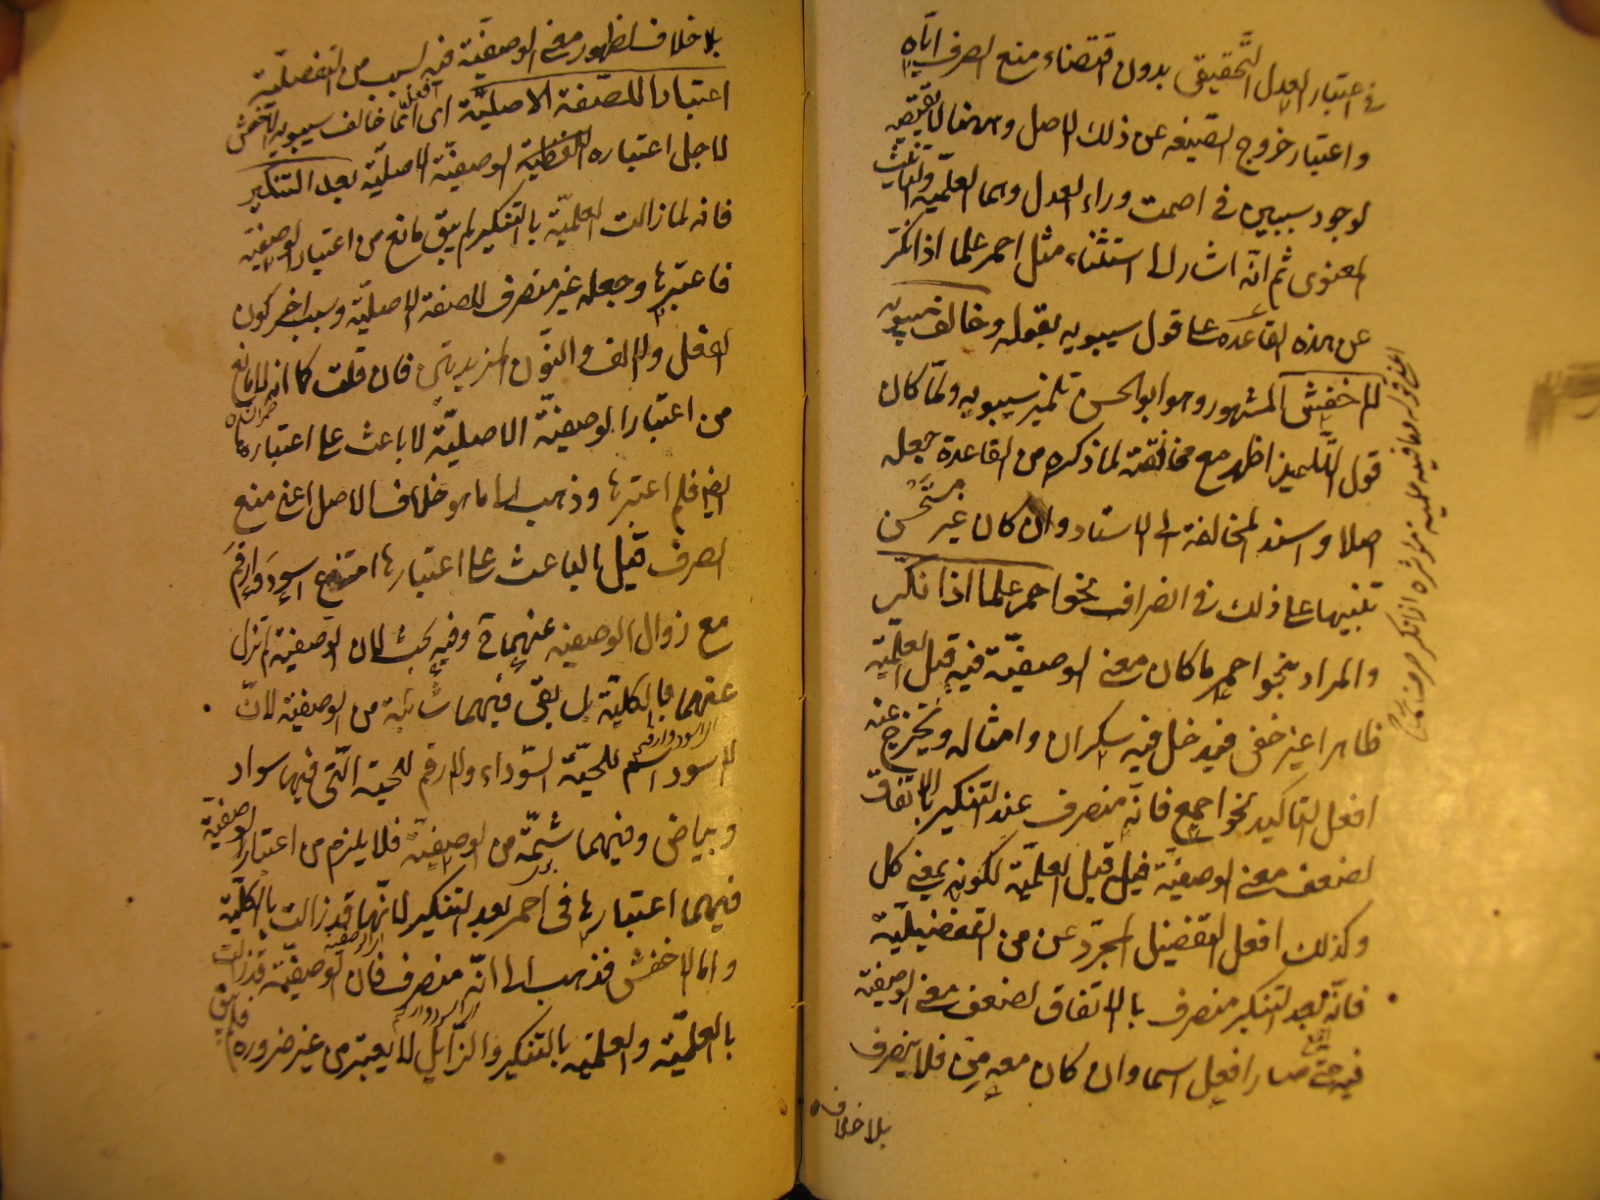 في اعتبار العدل التحقيقي بدون اقتضاء منع الصرف اياه
واعتبار خروج الصيغة عن ذلك الاصل وههنا لا يقتضيه
لوجود سببين في اصمت وراء العدل وهما العلمية والتانيث
المعنوى ثم انه اشار الى استثناء مثل احمر علما اذا نكر
عن هذه القاعدة على قول سيبويه بقوله وخالف سيبويه
الاخفش المشهور وهو ابو الحسن تلميذ سيبويه ولما كان
قول التلميذ اظهر مع مخالفته لما ذكره من القاعدة جعله
اصلا واسند المخالفة الى الاستاد وان كان غير مستحسن
تنبيها على ذلك في انصراف نحو احمر علما اذا نكر
والمراد بنحو احمر ما كان معنى الوصفية فيه قبل العلمية
ظاهرا غير خفى فيدخل فيه سكران وامثاله ويخرج عنه
افعل التاكيد نحو اجمع فانه منصرف عند التنكير بالاتفاق
لضعف معنى الوصفية فيه قبل العلمية لكونه بمعنى كل
وكذلك افعل التفضيل المجرد عن من التفضيلية
فانه بعد التنكير منصرف بالاتفاق لضعف معنى الوصفية
فيه حتى صار افعل اسما وان كان معه من فلا ينصرف
بلا خلاف
بلا خلاف لظهور معنى الوصفية فيه لسبب من التفضيلية
اعتبارا للصفة الاصلية اى انما خالف سيبويه الاخفش
لاجل اعتباره الوصفية الاصلية بعد التنكير
فانه لما زالت العلمية بالتنكير لم يبق مانع من اعتبار الوصفية
فاعتبرها وجعله غير منصرف للصفة الاصلية وسبب اخر كون
الفعل والالف والنون المزيدتين فان قلت كما انه لا مانع
من اعتبار الوصفية الاصلية لا باعث على اعتبارها
ايضا فلم اعتبرها وذهب الى ما هو خلاف الاصل اعنى منع
الصرف قيل الباعث على اعتبارها امتناع اسود وارقم
مع زوال الوصفية عنهما وفيه بحث لان الوصفية لم تزل
عنهما بالكلية بل بقى فيهما شائبة من الوصفية لان
الاسود اسم للحية السوداء والارقم للحية التى فيها سواد
وبياض وفيهما شمة من الوصفية فلا يلزم من اعتبار الوصفية
فيهما اعتبارها في احمر بعد التنكير لانها قد زالت بالكلية
واما الاخفش فذهب الى انه منصرف فان الوصفية قد زالت
بالعلمية والعلمية بالتنكير والزائل لا يعتبر من غير ضرورة